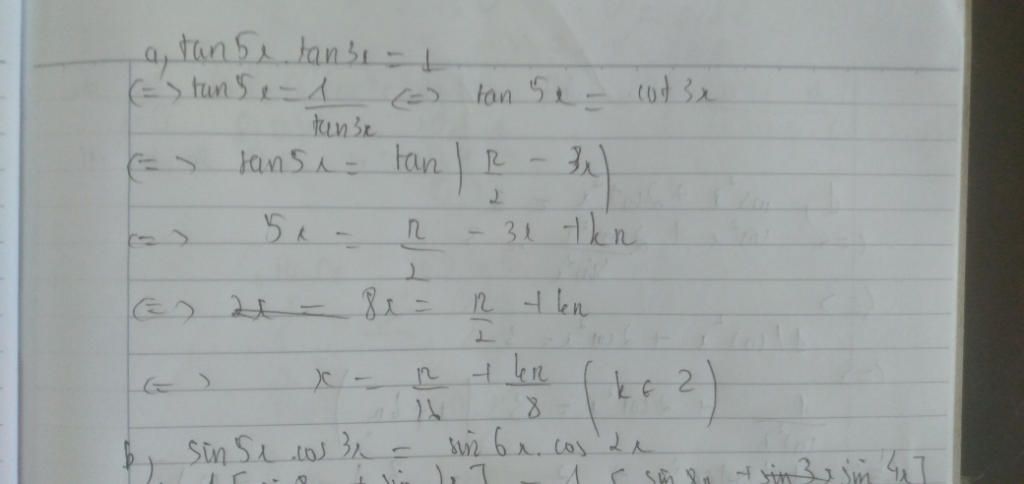 a, tan5x.tan3x = 1
<=> tan5x = 1/tan3x <=> tan 5x = cot 3x
<=> tan5x = tan(π/2 - 3x)
<=> 5x = π/2 - 3x + kπ
<=> 2x = 8x = π/2 + kπ
<=> x = π/16 + kπ/8 (k ∈ Z)
b, sin5x.cos3x = sin6x.cos2x